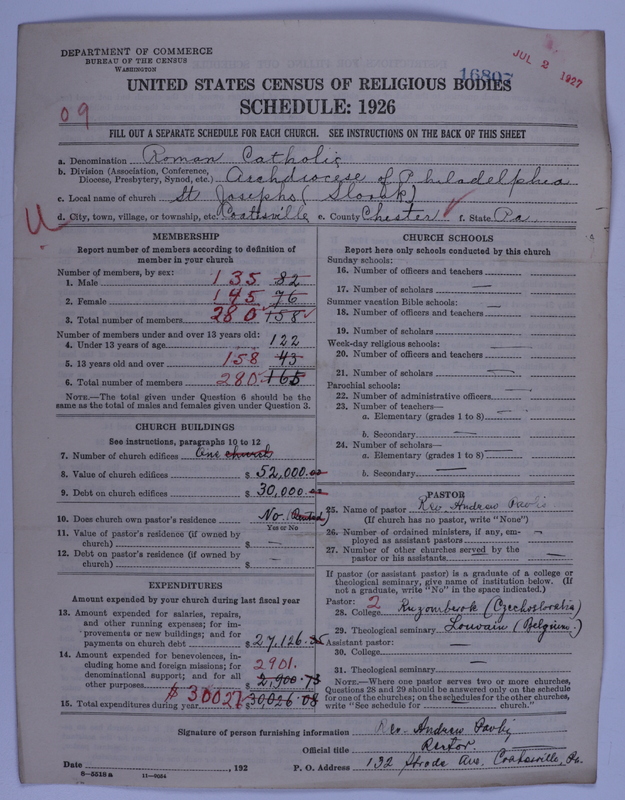 DEPARTMENT OF COMMERCE
BUREAU OF THE CENSUS
WASHINGTON
16807
JUL 2 1927
UNITED STATES CENSUS OF RELIGIOUS BODIES
SCHEDULE: 1926
09
FILL OUT A SEPARATE SCHEDULE FOR EACH CHURCH. SEE INSTRUCTIONS ON THE BACK OF THIS SHEET
a. Denomination Roman Catholic
b. Division (Association, Conference, Diocese, Presbytery, Synod, etc.) Archdiocese of Philadelphia
c. Local name of church St Josephs (Slovak)
d. City, town, village, or township, etc. Coatesville e. County Chester f. State Pa.
MEMBERSHIP
Report number of members according to definition of
member in your church
Number of members, by sex:
1. Male 135 82
2. Female 145 76
3. Total number of members 280 158
Number of members under and over 13 years old:
4. Under 13 years of age 122
5. 13 years old and over 158 43
6. Total number of members 280 165
NOTE.—The total given under Question 6 should be the
same as the total of males and females given under Question 3.
CHURCH BUILDINGS
See instructions, paragraphs 10 to 12
7. Number of church edifices One church
8. Value of church edifices $ 52,000.00
9. Debt on church edifices $ 30,000.00
10. Does church own pastor's residence No (Rented)
Yes or No
11. Value of pastor's residence (if owned by
church) $ —
12. Debt on pastor's residence (if owned by
church) $ —
EXPENDITURES
Amount expended by your church during last fiscal year
13. Amount expended for salaries, repairs,
and other running expenses; for im-
provements or new buildings; and for
payments on church debt $ 27,126.35
14. Amount expended for benevolences, in-
cluding home and foreign missions; for
denominational support; and for all
other purposes 2901. $ 2,900.73
15. Total expenditures during year $30027 $ 30,026.08
CHURCH SCHOOLS
Report here only schools conducted by this church
Sunday schools:
16. Number of officers and teachers
17. Number of scholars —
Summer vacation Bible schools:
18. Number of officers and teachers —
19. Number of scholars
Week-day religious schools:
20. Number of officers and teachers —
21. Number of scholars —
Parochial schools:
22. Number of administrative officers —
23. Number of teachers—
a. Elementary (grades 1 to 8) —
b. Secondary —
24. Number of scholars—
a. Elementary (grades 1 to 8) —
b. Secondary —
PASTOR
25. Name of pastor Rev. Andrew Pavlis
(If church has no pastor, write "None")
26. Number of ordained ministers, if any, em-
ployed as assistant pastors —
27. Number of other churches served by the
pastor or his assistants —
If pastor (or assistant pastor) is a graduate of a college or
theological seminary, give name of institution below. (If
not a graduate, write "No" in the space indicated.)
Pastor: 2
28. College Ruzomberok (Czechoslovakia)
29. Theological seminary Louvain (Belgium)
Assistant pastor:
30. College —
31. Theological seminary —
NOTE.—Where one pastor serves two or more churches,
Questions 28 and 29 should be answered only on the schedule
for one of the churches; on the schedules for the other churches,
write "See schedule for church."
Signature of person furnishing information Rev. Andrew Pavlis
Official title Rector.
Date , 192 P. O. Address 132 Strode Ave. Coatesville, Pa.
8—5518a 11—9654